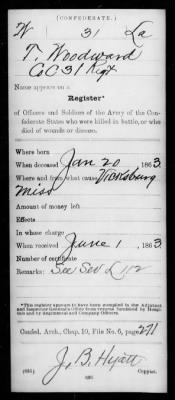 (CONFEDERATE.)
W 31 La
T. Woodward
Co C 31 Regt
Name appears on a
Register*
of Officers and Soldiers of the Army of the Con-
federate States who were killed in battle, or who
died of wounds or disease.
Where born
When deceased Jan 20, 1863
Where and from what cause Vicksburg
Miss
Amount of money left
Effects
In whose charge
When received June 1, 1863
Number of certificate
Remarks: See Sev L 112
*This register appears to have been compiled in the Adjutant
and Inspector General's Office from returns furnished by Hospi-
tals and by Regimental and Company Officers.
Confed. Arch., Chap. 10, File No. 6, page 271
J. B. Hyatt
Copyist.